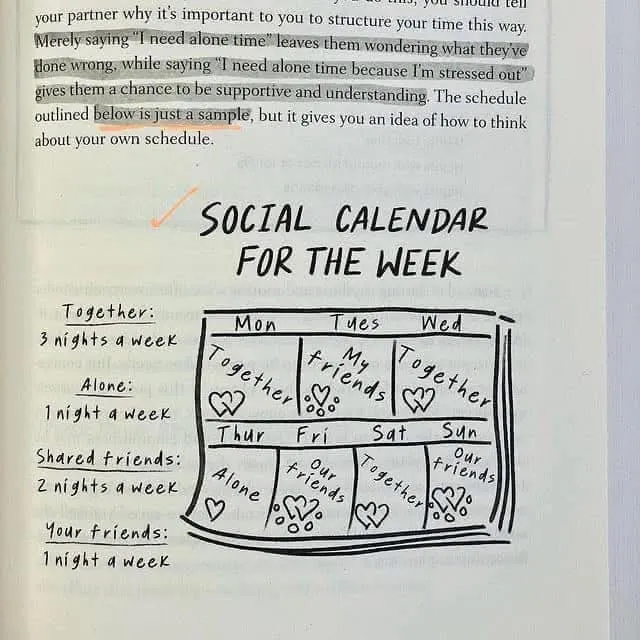 you should tell
your partner why it's important to you to structure your time this way.
Merely saying "I need alone time" leaves them wondering what they've
done wrong, while saying "I need alone time because I'm stressed out"
gives them a chance to be supportive and understanding. The schedule
outlined below is just a sample, but it gives you an idea of how to think
about your own schedule.
SOCIAL CALENDAR
FOR THE WEEK
Together:
3 nights a week
Alone:
1 night a week
Shared friends:
2 nights a week
Your friends:
1 night a week
Mon Tues Wed
Together
My
friends
Together
Thur Fri Sat Sun
Alone
Our
friends
Together
Our
friends